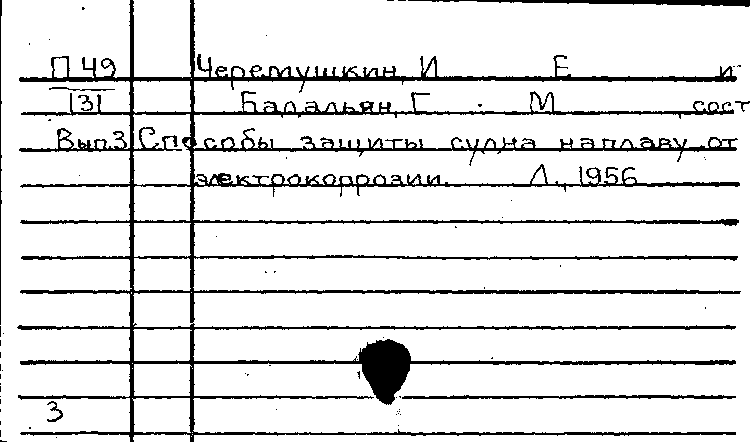 П 49 Черемушкин, И Е и
131 Бадальян, Г. М сост
Вып.3 Способы защиты судна наплаву от
электрокоррозии. Л., 1956
3